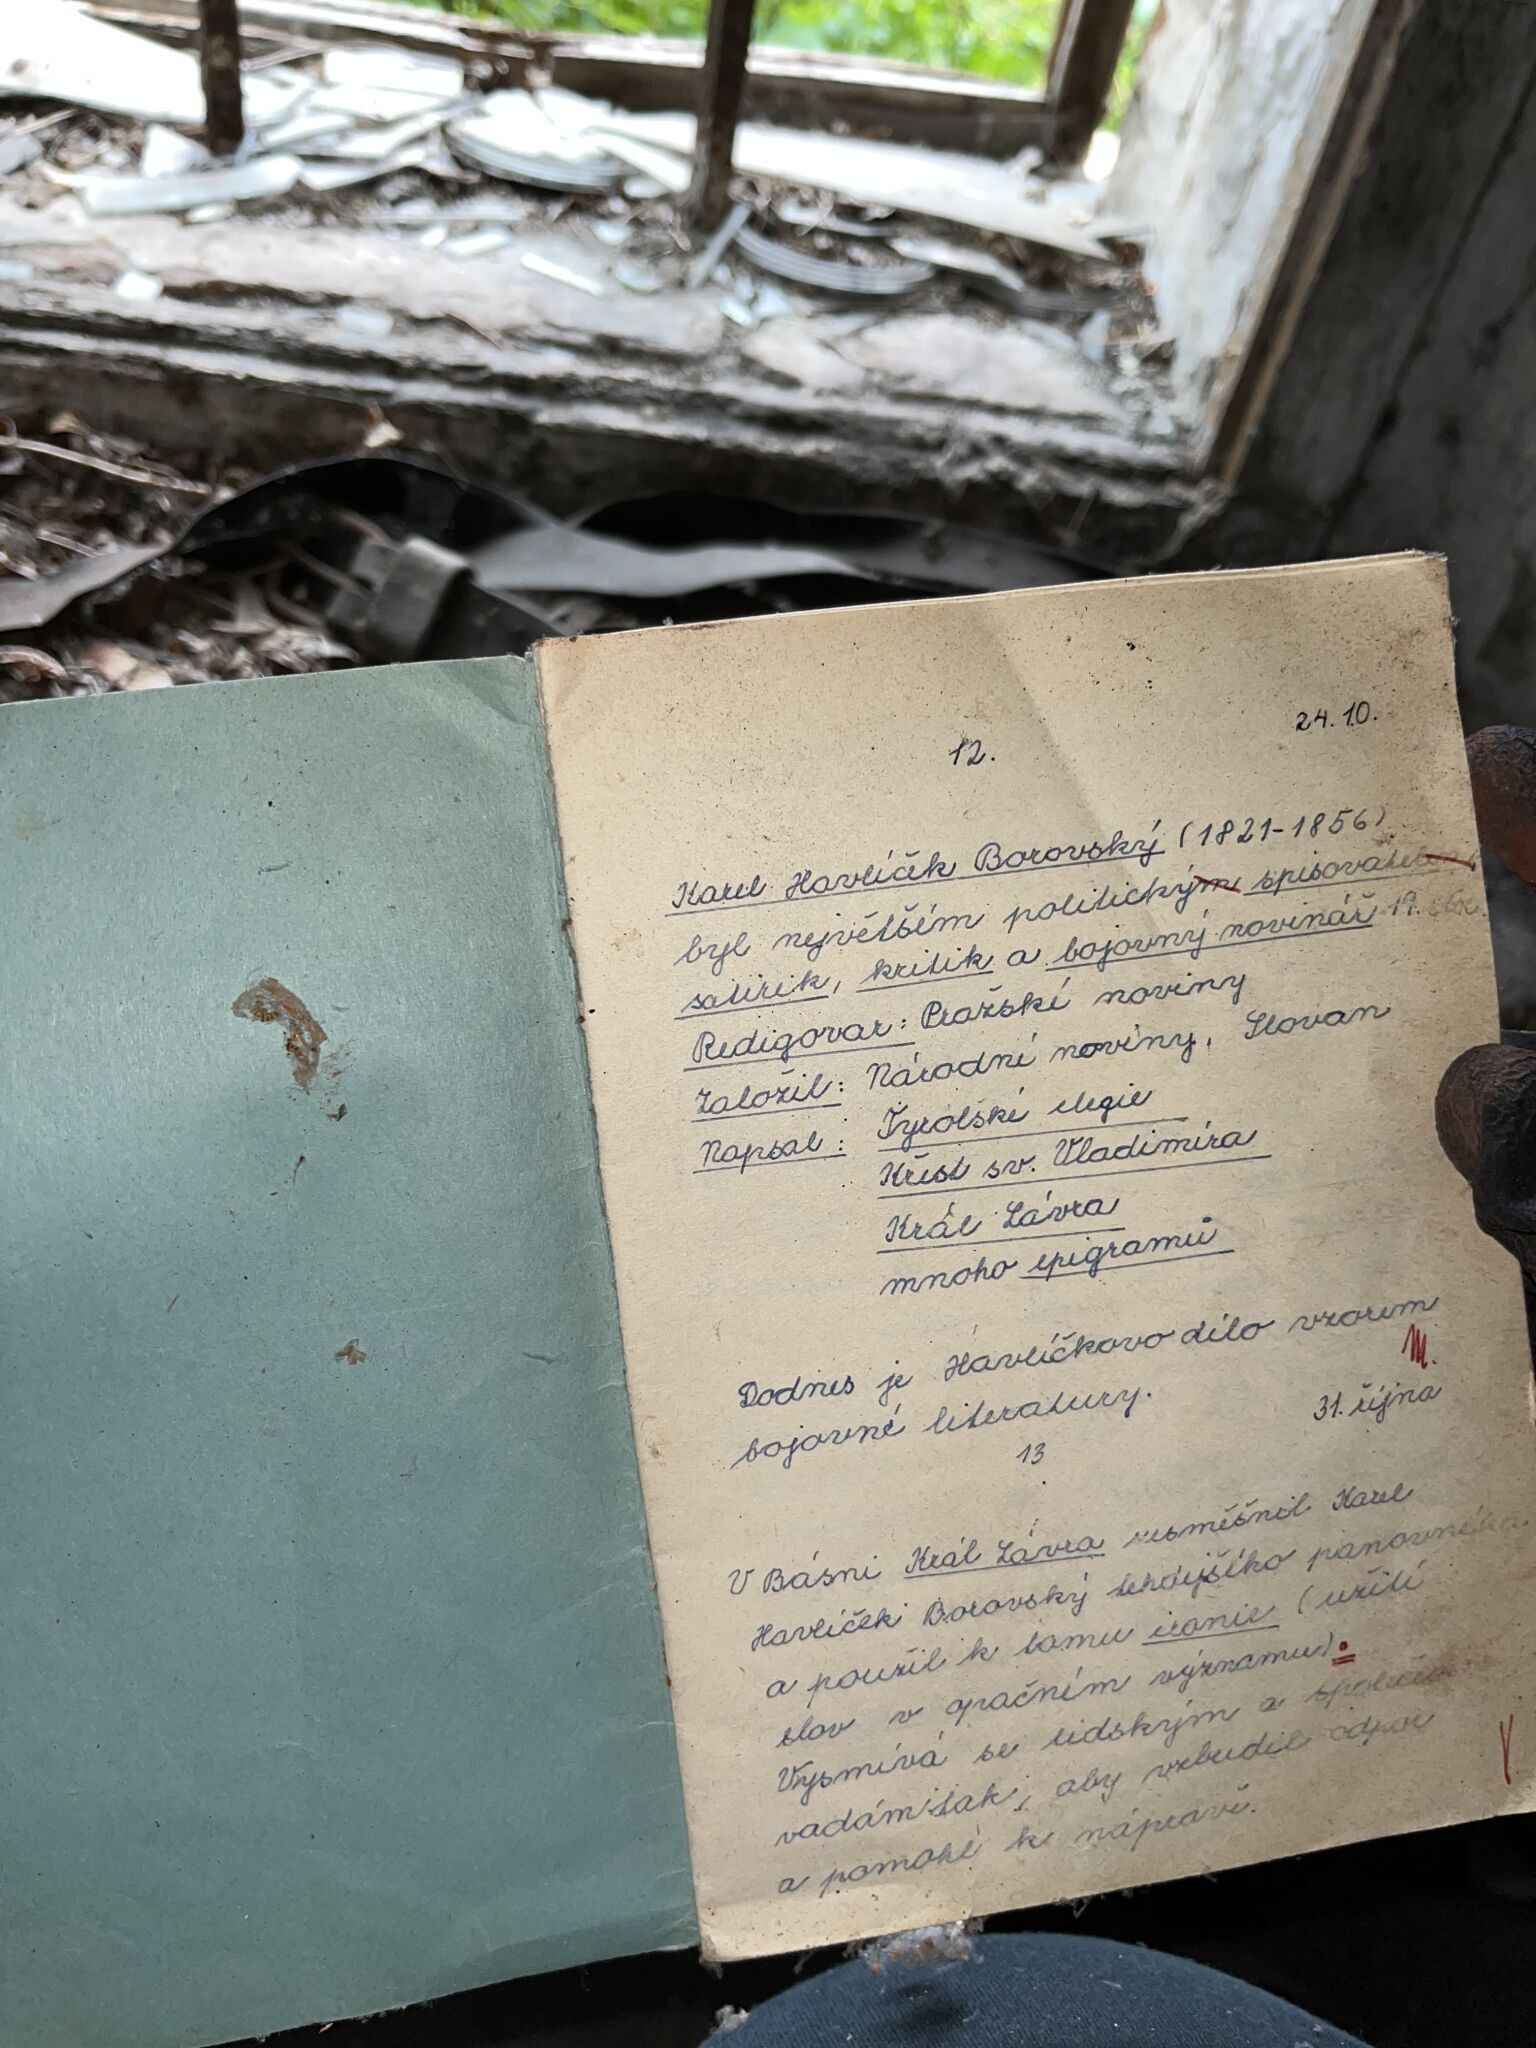 24.10.
12.
Karel Havlíček Borovský (1821-1856)
byl největším politickým spisovatelem,
satirik, kritik a bojovný novinář 19. stol.
Redigoval: Pražské noviny
Založil: Národní noviny, Slovan
Napsal: Tyrolské elegie
Křest sv. Vladimíra
Král Lávra
mnoho epigramů
Dodnes je Havlíčkovo dílo vzorem
bojovné literatury.
M.
31. října
13
V Básni Král Lávra zesměšnil Karel
Havlíček Borovský tehdejšího panovníka
a použil k tomu ironie (užití
slov v opačném významu).
Vysmívá se lidským a
vadám tak, aby vzbudil odpor
a pomohl k nápravě.